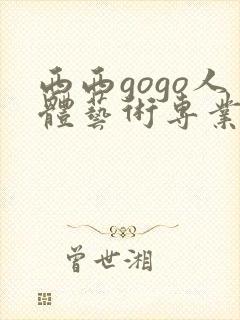 西西gogo人
體藝術專業
曾世湘